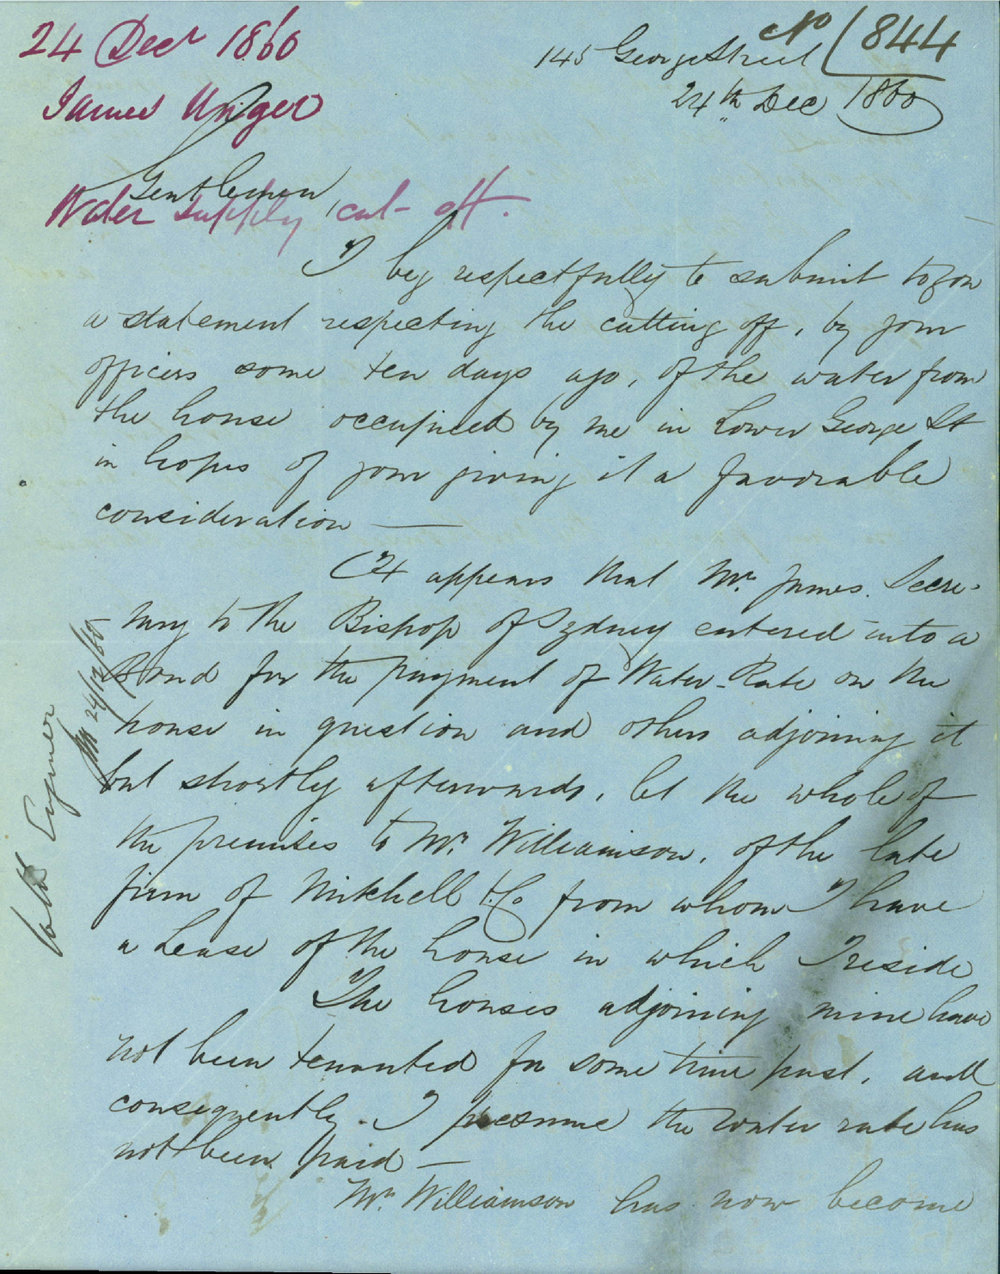 24 Decr 1860
James Unger
Water supply cut off.
No 844
1860
145 George Street
24th Dec
Gentlemen,
I beg respectfully to submit to you
a statement respecting the cutting off, by your
officers some ten days ago, of the water from
the house occupied by me in Lower George St
in hopes of your giving it a favorable
consideration —
It appears that Mr. James Secre-
tary to the Bishop of Sydney entered into a
Bond for the payment of Water-Rate on the
house in question and others adjoining it
but shortly afterwards, let the whole of
the premises to Mr. Williamson, of the late
firm of Mitchell & Co from whom I have
a Lease of the house in which I reside
The houses adjoining mine have
not been tenanted for some time past, and
consequently I presume the water rate has
not been paid —
Mr. Williamson has now become
City Engineer
24/12/60